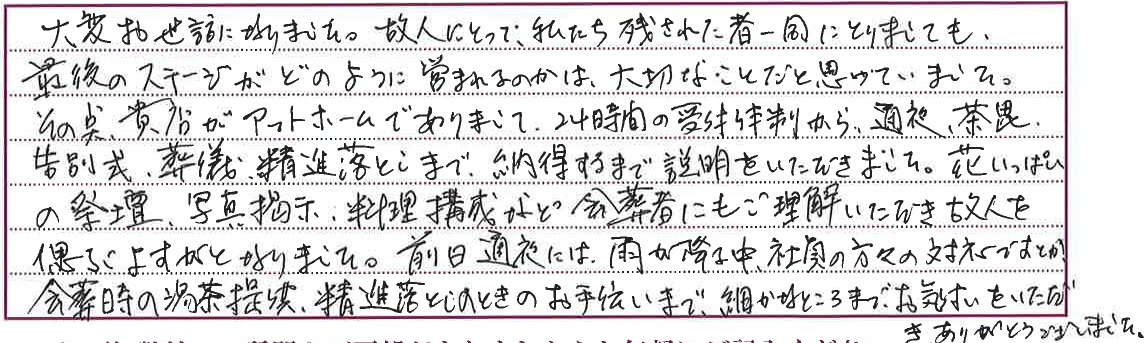 大変お世話になりました。故人にとって、私たち残された者一同にとりましても、
最後のステージがどのように営まれるのかは、大切なことだと思っていました。
その点、貴店がアットホームでありまして、24時間の受付体制から、通夜、茶毘、
告別式、葬儀、精進落としまで、納得するまで説明をいただきました。花いっぱい
の祭壇、写真掲示、料理構成など会葬者にもご理解いただき故人を
偲ぶよすがとなりました。前日通夜には、雨が降る中、社員の方々の対応ですとか
会葬時の湯茶提供、精進落としのときのお手伝いまで、細かなところまでお気遣いをいただ
きありがとうございました。